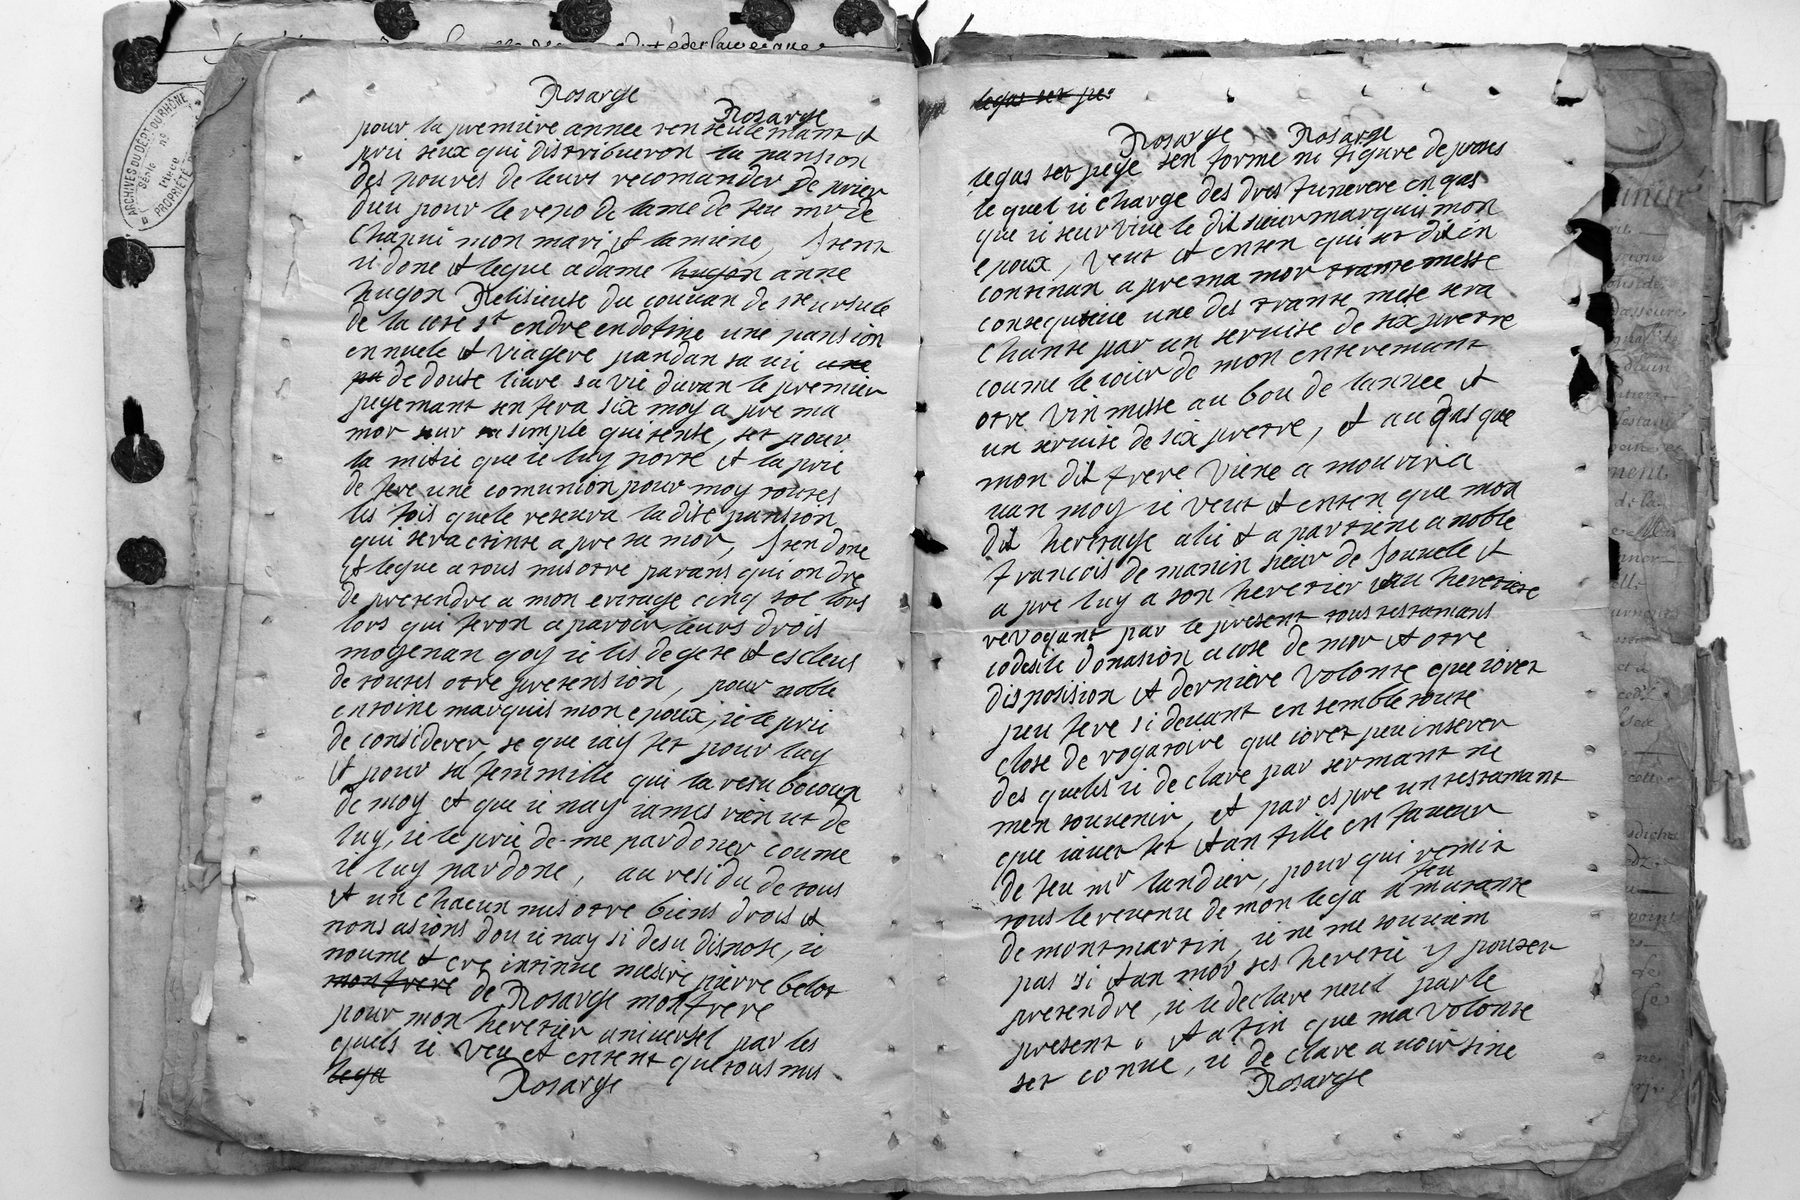 ARCHIVES DU DÉPT DU RHÔNE
Série
Pièce
PROPRIÉTÉ
Rosarge
Rosarge
pour la premiere annee ren seulemant &
prie seux qui distribueron la pansion
des povres de leurs recomander de prier
dieu pour le repo de lame de feu mr de
Chapui mon mari & la miene, Iten
ie done & legue a dame hugon anne
hugon Relisieuse du couvan de ste ursule
de la cote st endre en dofine une pansion
ennuele & viagere pandan sa vie une
pa de douse livre sa vie duran le premier
peyemant sen fera six moy a pre ma
mor sur sa simple quitense, set pour
la mitie que ie luy porte & la prie
de fere une comunion pour moy toutes
les fois quele resevra la dite pansion
qui sera etinte a pre sa mor, Iten done
& legue a tous mes otre parans qui on dre
de pretendre a mon eritage cinq sol lors
lors qui feron a paroir leurs drois
moyenan qoy ie les degete & esclus
de toutes otre pretension, pour noble
entoine marquis mon epoux, ie le prie
de considerer se que iay fet pour luy
& pour sa femmille qui la resu bocoup
de moy & que ie nay iames rien ut de
luy, ie le prie de me pardoner coume
ie luy pardone, au residu de tous
& un chacun mes otre biens drois &
nons asions dou ie nay si desu dispose, ie
noume & cre instinue mesire pierre belot
mon frere de Rosarge mon frere
pour mon heretier universel par les
quels ie veu et entent que tous mes
lega
Rosarge
legas set pe
Rosarge Rosarge
legas set peye sen forme ni figure de proses
le quel ie charge des dres funerere en qas
que ie survive le dit sieur marquis mon
epoux, veut & enten qui set dit in
continan a pre ma mor trante messe
consequtive une des trante mese sera
chante par un servise de six pretre
coume le iour de mon enteremant
otre vin messe au bou de lannee &
un servise de six pretre, & au qas que
mon dit frere viene a mourir a
van moy ie veut & enten que mon
dit heritage alie & a partiene a noble
francois de manin sieur de Iouvele &
a pre luy a son heretier ou heritiere
revoqant par le present tous testamans
codesile donasion a cose de mor & otre
disposision & derniere volonte que iores
peu fere si devant en semble toute
close de rogatoire que iores peu inserer
des quelles ie declare par sermant ne
men souvenir, & par espre un testamant
que iaves fet etan fille en faveur
de feu mr landier, pour qui remit
tous le revenu de mon lega a feu mutante
de montmartin, ie ne me souvien
pas si etan mor ses heretie y pouset
pretendre, ie le declare neul par le
present. & afin que ma volonte
set conue, ie declare avoir sine
Rosarge